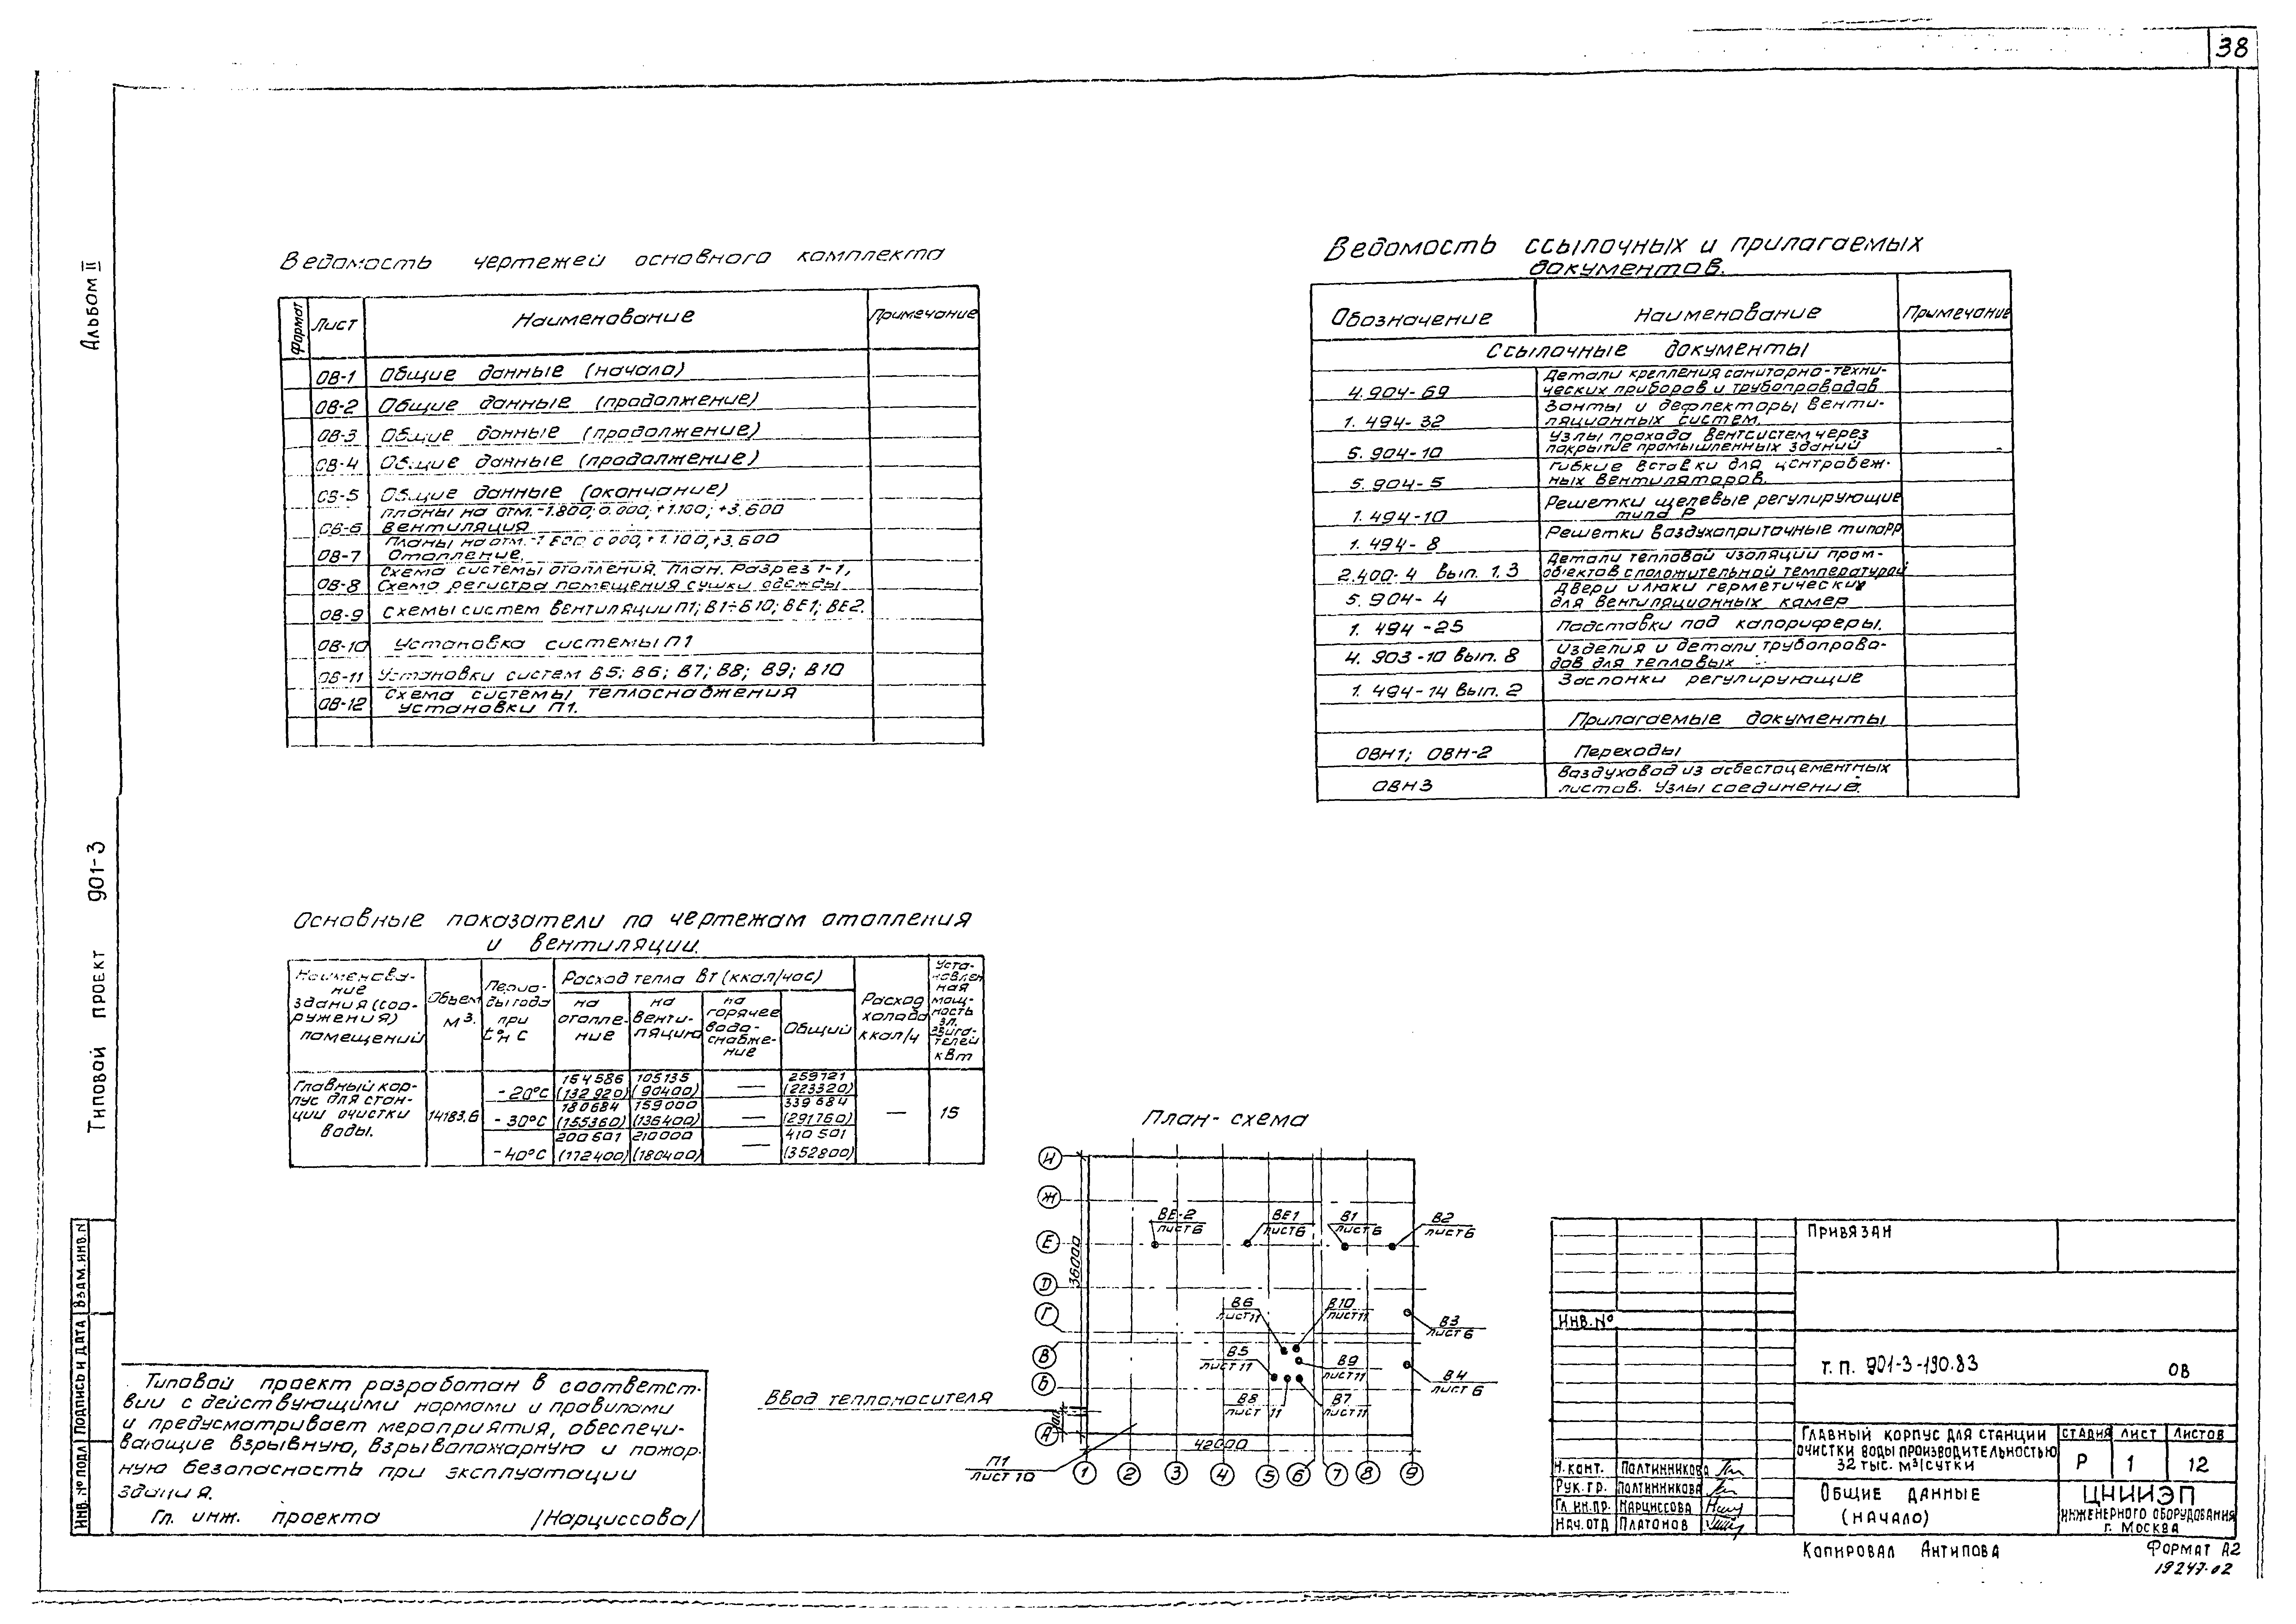 38
Альбом II
Типовой проект 901-3
Ведомость чертежей основного комплекта
Формат
Лист
Наименование
Примечание
ОВ-1 Общие данные (начало)
ОВ-2 Общие данные (продолжение)
ОВ-3 Общие данные (продолжение)
ОВ-4 Общие данные (продолжение)
ОВ-5 Общие данные (окончание)
Планы на отм.-1.800; 0.000; +1.100; +3.600
ОВ-6 Вентиляция
Планы на отм.-1.800; 0.000; +1.100; +3.600
ОВ-7 Отопление.
Схема системы отопления. План. Разрез 1-1,
ОВ-8 Схема регистра помещения сушки одежды
ОВ-9 Схемы систем вентиляции П1; В1÷В10; ВЕ1; ВЕ2.
ОВ-10 Установка системы П1
ОВ-11 Установки систем В5; В6; В7; В8; В9; В10
Схема системы теплоснабжения
ОВ-12 установки П1.
Ведомость ссылочных и прилагаемых
документов.
Обозначение
Наименование
Примечание
Ссылочные документы
Детали крепления санитарно-техни-
4.904-69 ческих приборов и трубопроводов
Зонты и дефлекторы венти-
1.494-32 ляционных систем.
Узлы прохода вентсистем через
5.904-10 покрытие промышленных зданий
Гибкие вставки для центробеж-
5.904-5 ных вентиляторов.
Решетки щелевые регулирующие
1.494-10 типа Р
Решетки воздухоприточные типа РР
1.494-8
Детали тепловой изоляции пром-
2.400-4 вып. 1.3 объектов с положительной температурой
Двери и люки герметических
5.904-4 для вентиляционных камер
1.494-25 Подставки под калориферы.
Изделия и детали трубопрово-
4.903-10 вып. 8 дов для тепловых
1.494-14 вып. 2 Заслонки регулирующие
Прилагаемые документы
ОВН1; ОВН-2 Переходы
Воздуховод из асбестоцементных
ОВН3 листов. Узлы соединения.
Основные показатели по чертежам отопления
и вентиляции.
Наименова-
ние
здания (соо-
ружения)
помещений
Объем
м³.
Перио-
ды года
при
t°н С
Расход тепла Вт (ккал/час)
на
отопле-
ние
на
венти-
ляцию
на
горячее
водо-
снабже-
ние
Общий
Расход
холода
ккал/ч
Уста-
новлен
ная
мощ-
ность
эл.
двига-
телей
кВт
Главный кор-
пус для стан-
ции очистки
воды.
14183.6
-20°С 154586 (132920) 105135 (90400) — 259721 (223320)
-30°С 180684 (155360) 159000 (136400) — 339684 (291760)
-40°С 200501 (172400) 210000 (180400) — 410501 (352800)
—
15
План-схема
И
Ж
Е
Д
Г
В
Б
А
36000
42000
ВЕ-2
лист 6
ВЕ1
лист 6
В1
лист 6
В2
лист 6
В6
лист 11
В10
лист 11
В3
лист 6
В5
лист 11
В9
лист 11
В4
лист 6
В8
лист 11
В7
лист 11
Ввод теплоносителя
П1
лист 10
1 2 3 4 5 6 7 8 9
Типовой проект разработан в соответст-
вии с действующими нормами и правилами
и предусматривает мероприятия, обеспечи-
вающие взрывную, взрывопожарную и пожар-
ную безопасность при эксплуатации
здания.
Гл. инж. проекта /Нарциссова/
Взам. инв. N
Подпись и дата
Инв. № подл
Привязан
Инв. №
Т. П. 901-3-190.83 ОВ
Главный корпус для станции
очистки воды производительностью
32 тыс. м³/сутки
Стадия Лист Листов
Р 1 12
Н. конт. Полтинникова
Рук. гр. Полтинникова
Гл. ин. пр. Нарциссова
Нач. отд Платонов
Общие данные
(начало)
ЦНИИЭП
инженерного оборудования
г. Москва
Копировал Антипова
Формат А2
19247-02